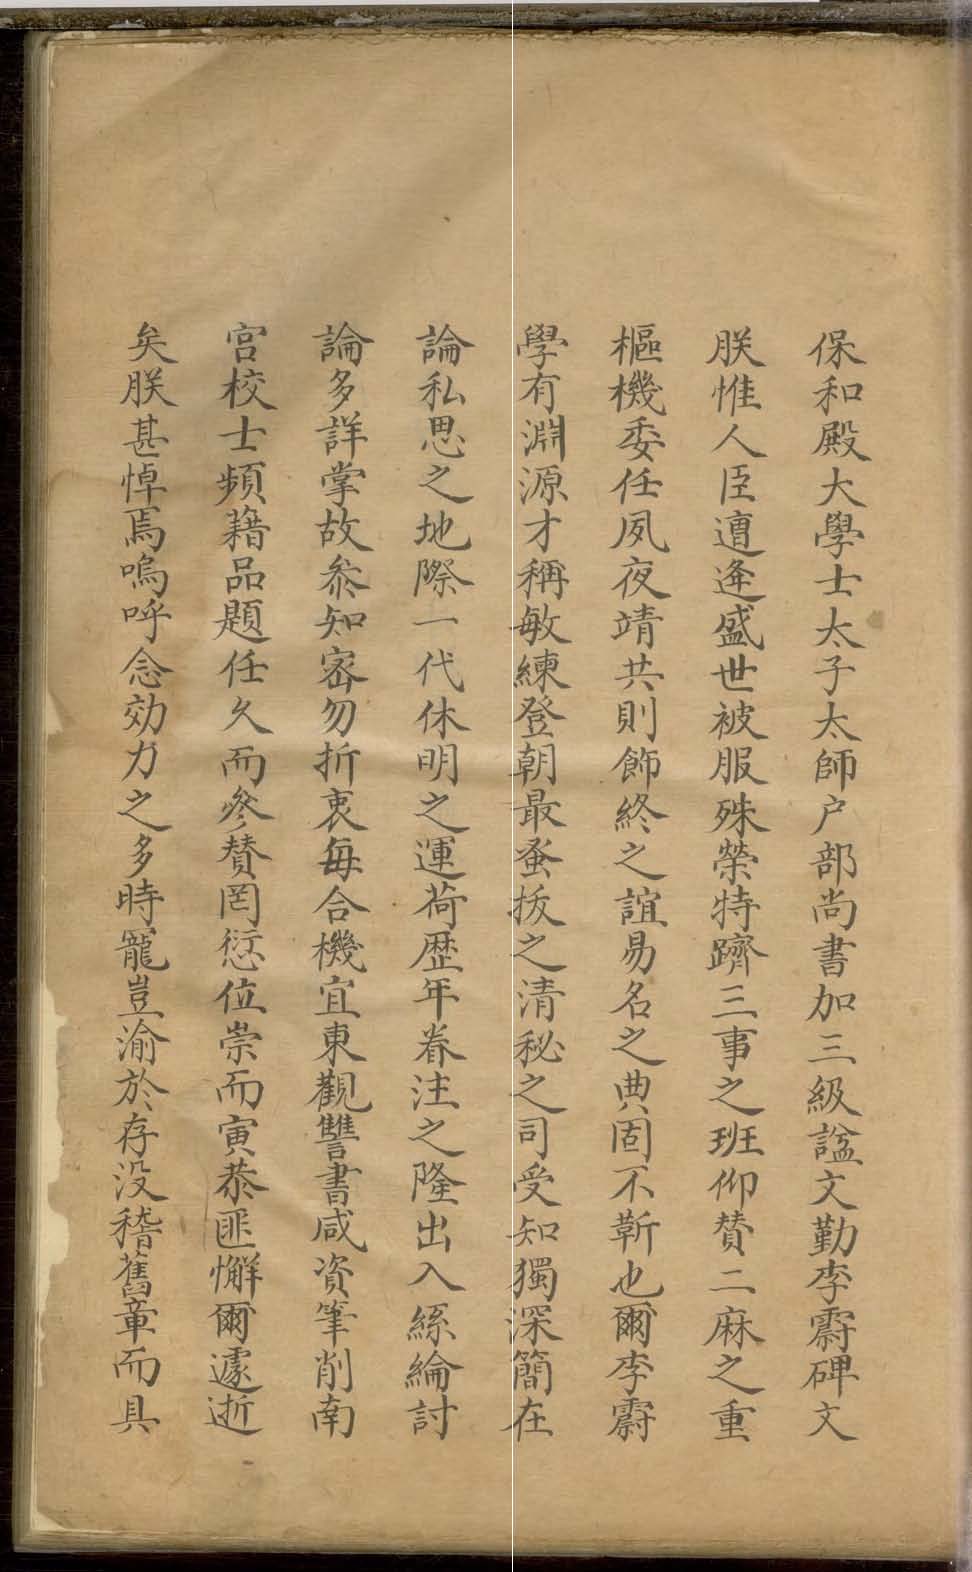 保和殿大學士太子太師户部尚書加三級諡文勤李霨碑文
朕惟人臣遭逢盛世被服殊榮特躋三事之班仰賛二麻之重
樞機委任夙夜靖共則飾終之誼易名之典固不靳也爾李霨
學有淵源才稱敏練登朝最蚤拔之清秘之司受知獨深簡在
論私思之地際一代休明之運荷歴年眷注之隆出入絲綸討
論多詳掌故叅知宻勿折衷每合機宜東觀讐書咸資筆削南
宫校士頻藉品題任久而叅賛罔愆位崇而寅恭匪懈爾遽逝
矣朕甚悼焉嗚呼念効力之多時寵豈渝於存没稽舊章而具